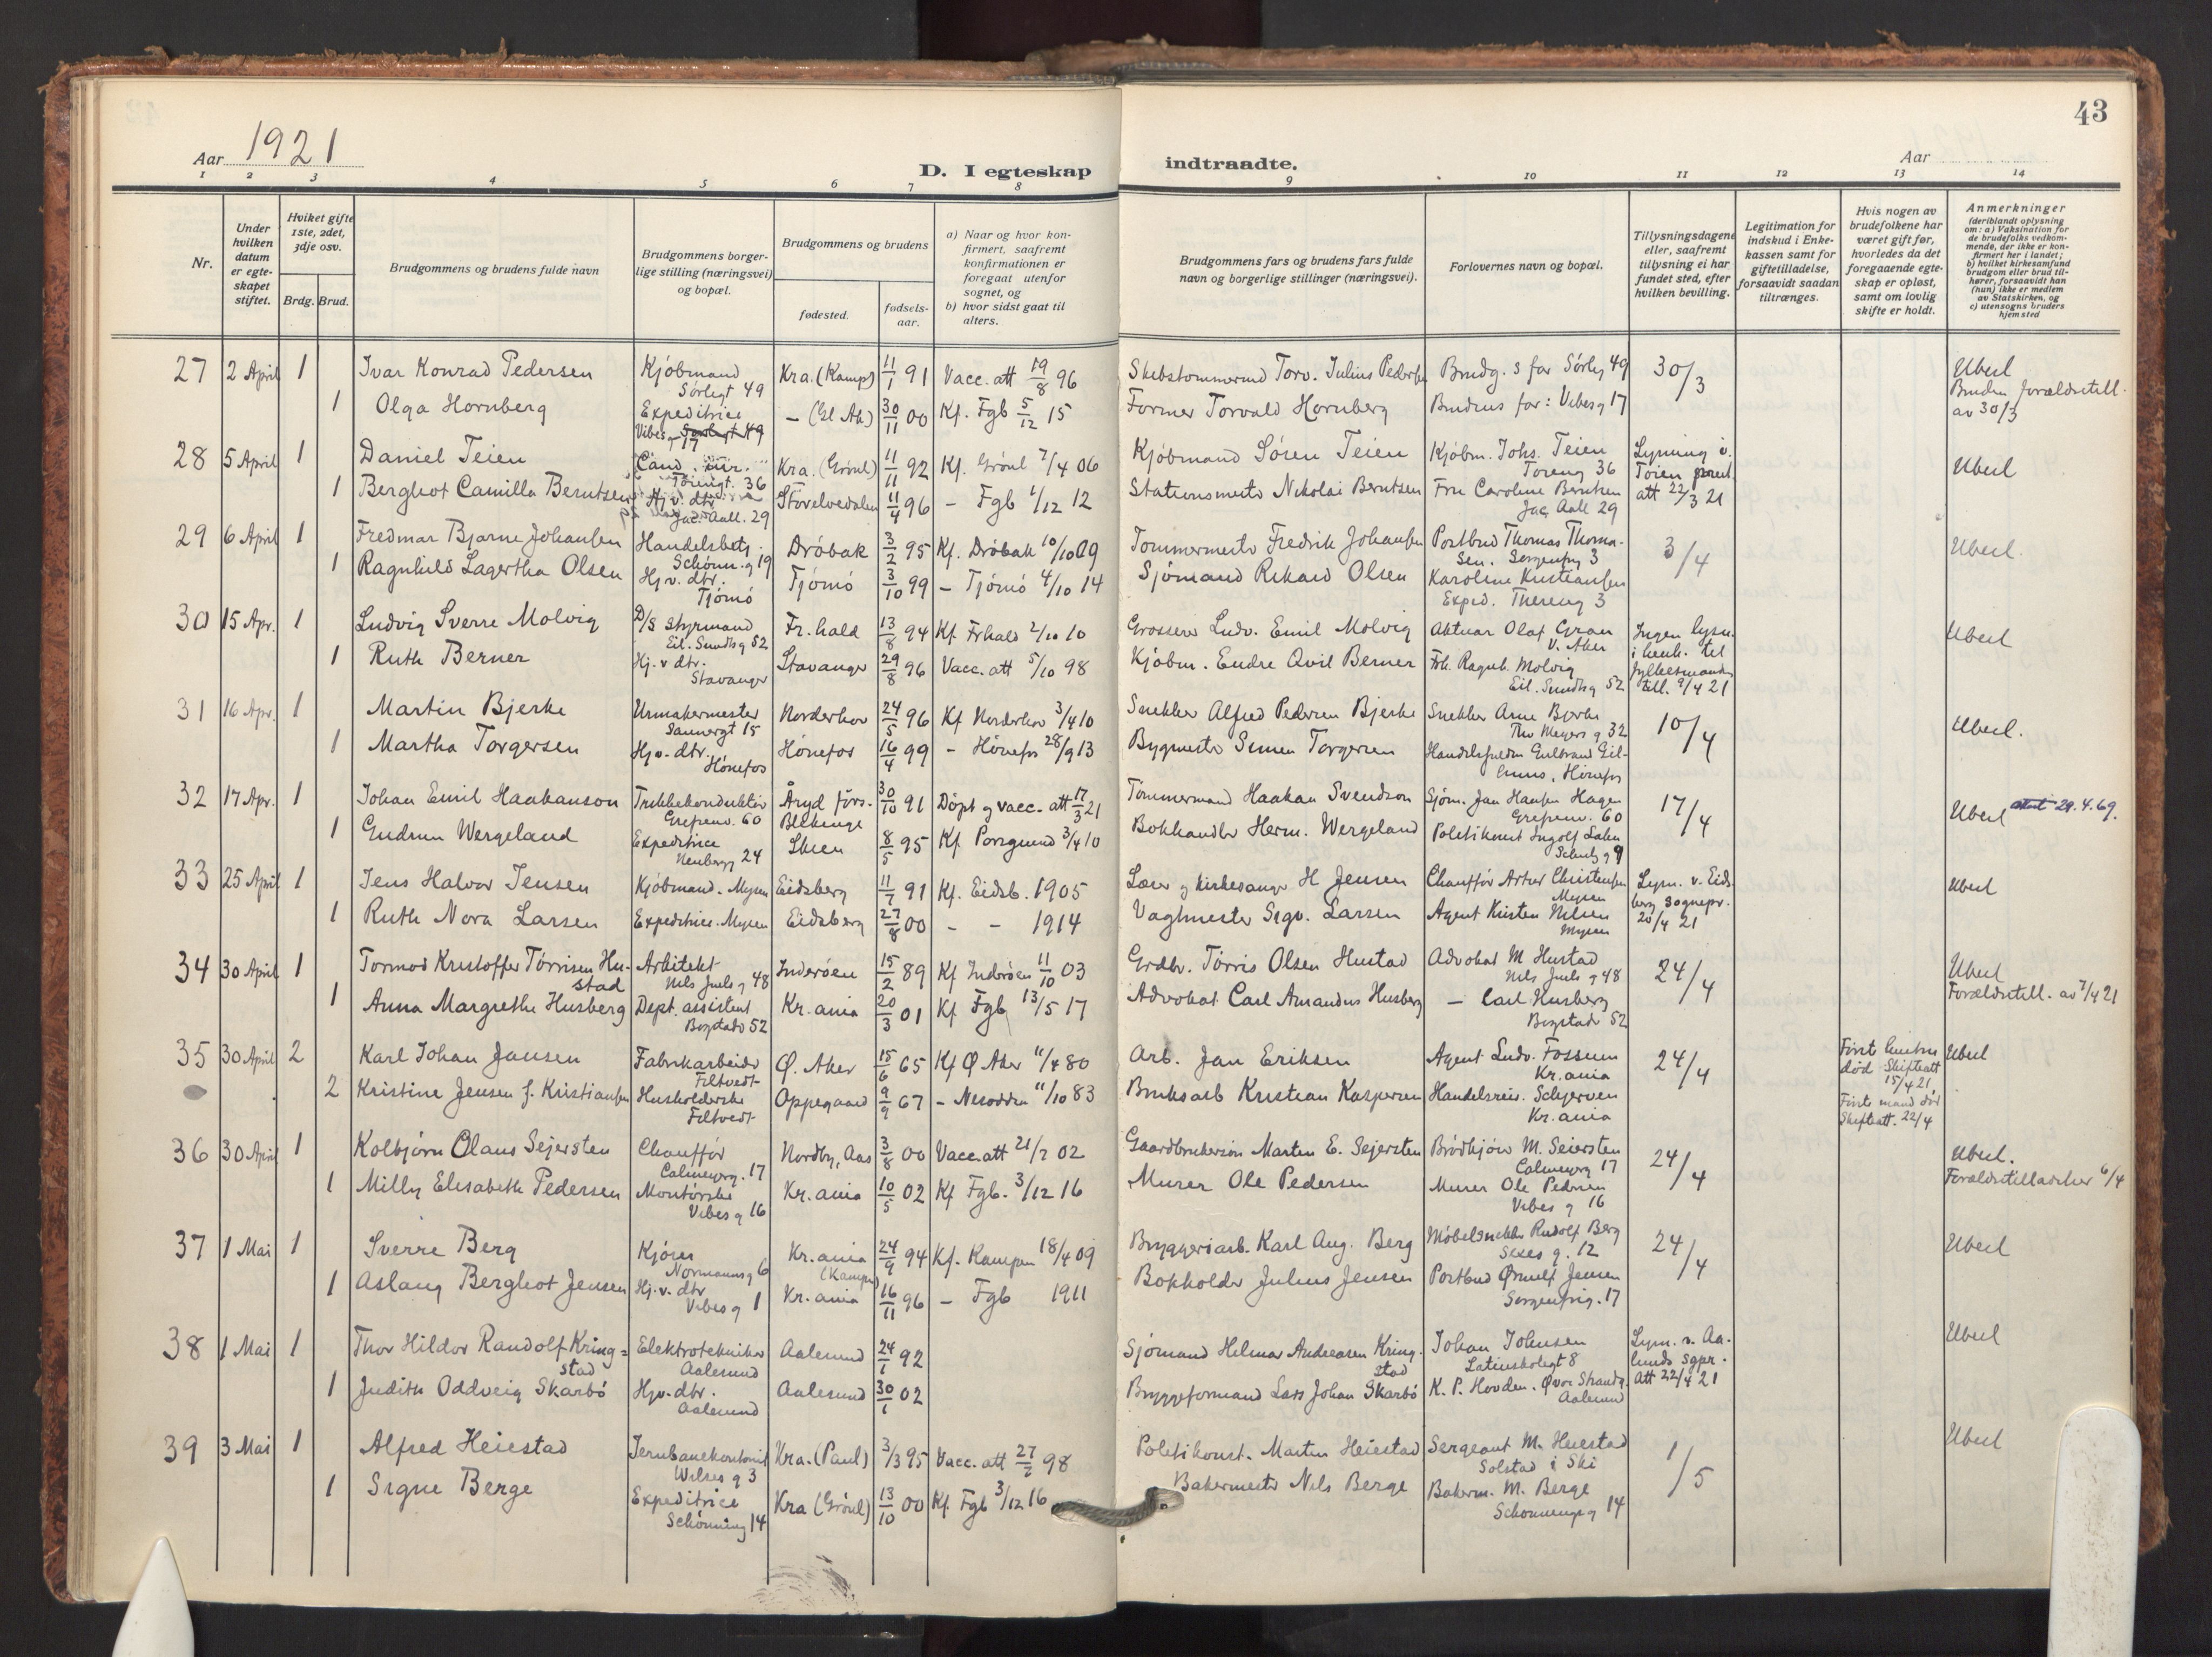 43
Aar 1921
D. I egteskap indtraadte.
Aar
1 2 3 4 5 6 7 8 9 10 11 12 13 14
Nr.
Under hvilken datum er egteskapet stiftet.
Hviket gifte 1ste, 2det, 3dje osv.
Brdg. Brud.
Brudgommens og brudens fulde navn
Brudgommens borgerlige stilling (næringsvei) og bopæl.
Brudgommens og brudens
fødested.
fødselsaar.
a) Naar og hvor konfirmert, saafremt konfirmationen er foregaat utenfor sognet, og
b) hvor sidst gaat til alters.
Brudgommens fars og brudens fars fulde navn og borgerlige stillinger (næringsvei).
Forlovernes navn og bopæl.
Tillysningsdagene eller, saafremt tillysning ei har fundet sted, efter hvilken bevilling.
Legitimation for indskud i Enkekassen samt for giftetilladelse, forsaavidt saadan tiltrænges.
Hvis nogen av brudefolkene har været gift før, hvorledes da det foregaaende egteskap er opløst, samt om lovlig skifte er holdt.
Anmerkninger
(deriblandt oplysning om: a) Vaksination for de brudefolks vedkommende, der ikke er konfirmert her i landet;
b) hvilket kirkesamfund brudgom eller brud tilhører, forsaavidt han (hun) ikke er medlem av Statskirken, og
c) utensogns bruders hjemsted
27 2 April 1 Ivar Konrad Pedersen Kjøbmand Sørligt 49 Kra. (Kamp) 11/1 91 Vacc. att 19/8 96 Torv. Julius Pedersen Brudg. s far Sørlig 49 30/3 Uberl
1 Olga Hornberg Expeditrice Vibesg 17 – (Gl Ak) 30/11 00 Kf. Fgb 5/12 15 Former Torvald Hornberg Brudens far: Vibesg 17 Bruden forældretill. av 30/3
28 5 April 1 Daniel Teien Cand. jur. Tøiengt. 36 Kra. (Grönl) 11/11 92 Kf. Grönl 7/4 06 Kjøbmand Søren Teien Kjøbm. Johs. Teien Toreng 36 Lysning i. Töien att 22/3 21 Uberl
1 Bergliot Camilla Berntsen Hj. v. dtr. Jac. Aall. 29 Storelvedalen 11/4 96 – Fgb 1/12 12 Stationsmester Nikolai Berntsen Fru Caroline Berntsen Jac Aall 29
29 6 April 1 Fredmar Bjarne Johansen Handelsbetj. Schønn. g 19 Drøbak 3/2 95 Kf. Drøbak 10/10 09 Tømmermester Fredrik Johansen Postbud Thomas Thomasen. Sorgenfrg 3 3/4 Uberl.
1 Ragnhild Lagertha Olsen Hj. v. dtr. Tjømø Tjømø 3/10 99 – Tjømø 4/10 14 Sjømand Rikard Olsen Karoline Kristiansen Exped. Thereng 3
30 15 Apr. 1 Ludvig Sverre Molvig D/S styrmand Eil. Sundtsg 52 Fr.hald 13/8 94 Kf. Frhald 2/10 10 Grosserer Ludv. Emil Molvig Aktuar Olaf Gran V. Aker Ingen lysn. i henh. til fylkesmands till. 9/4 21 Uberl
1 Ruth Berner Hj. v dtr. Stavanger Stavanger 29/8 96 Vacc. att 5/10 98 Kjøbm. Endre Qvil Berner Frk. Ragnh. Molvig Eil. Sundtsg 52
31 16 Apr. 1 Martin Bjerke Urmakermester Sannergt 15 Norderhov 24/5 96 Kf Norderhov 3/4 10 Snekker Alfred Pedersen Bjerke Snekker Arne Bjerke Thv Meyers g 32 10/4 Uberl.
1 Martha Torgersen Hj. v. dtr. Hønefos Hønefos 16/4 99 – Hønefos 28/9 13 Bygmester Simen Torgersen Gulbrand Hønefos
32 17 Apr. 1 Johan Emil Haakanson Trikkekonduktør Grefsenv. 60 Åryd förs. Blekinge 30/10 91 Döpt og vacc. att 17/3 21 Tömmermand Haakan Svendson Sjøm. Jan Hansen Hagen Grefsenv. 60 17/4 Uberl attest 29.4.69.
1 Gudrun Wergeland Expeditrice Neubergg 24 Skien 8/5 95 Kf. Porsgrund 3/4 10 Bokhandler Herm. Wergeland Politikonst Ingolf Schultz g 9
33 25 April 1 Jens Halvor Jensen Kjøbmand. Mysen Eidsberg 11/7 91 Kf. Eidsb. 1905 Lærer og kirkesanger H Jensen Chauffør Artur Christensen Mysen Lysn. v. Eidsberg sognepr. 20/4 21 Uberl
1 Ruth Nora Larsen Expeditrice. Mysen Eidsberg 27/8 00 – – 1914 Vagtmester Sigv. Larsen Agent Kristen Nilsen Mysen
34 30 April 1 Tormod Kristoffer Tørrisen Hustad Arkitekt Nils Juels g 48 Inderøen 15/2 89 Kf Inderøen 11/10 03 Grdbr. Tørris Olsen Hustad Advokat M Hustad Nils Juels g 48 24/4 Uberl
1 Anna Margrethe Husberg Dept. assistent Bogstadv 52 Kr.ania 20/3 01 Kf Fgb 13/5 17 Advokat Carl Amandus Husberg – Carl Husberg Bogstadv 52 Forældretill. av 7/4 21
35 30 April 2 Karl Johan Jansen Fabrikarbeider Filtvedt Ø. Aker 15/6 65 Kf Ø Aker 11/4 80 Arb. Jan Eriksen Agent Ludv. Fossum Kr.ania 24/4 Første hustru død Skifteatt 15/4 21. Uberl
2 Kristine Jensen f. Kristiansen Husholderske Filtvedt Oppegaard 9/9 67 – Nesodden 11/10 83 Bruksarb Kristian Kaspersen Handelsreis. Schjerven Kr.ania Første mand død Skifteatt. 22/4
36 30 April 1 Kolbjørn Olaus Sejersten Chauffør Calmeyerg. 17 Nordby, Aas 3/8 00 Vacc. att 21/7 02 Gaardbruker Marten E. Sejersten M. Seiersten Calmeyerg 17 24/4 Uberl.
1 Milly Elisabeth Pedersen Vibes g 16 Kr.ania 10/5 02 Kf Fgb. 3/12 16 Murer Ole Pedersen Murer Ole Pedersen Vibes g 16 Forældretilladelse 6/4
37 1 Mai 1 Sverre Berg Kjører Normannsg 6 Kr.ania (Kampen) 24/9 94 Kf. Kampen 18/4 09 Bryggeriarb. Karl Aug. Berg Møbelsnekker Rudolf Berg g. 12 24/4 Uberl
1 Aslaug Bergliot Jensen Hj. v. dtr Vibes g 1 Kr.ania 16/11 96 – Fgb 1911 Bokholder Julius Jensen Postbud Ørnulf Jensen Sorgenfrig. 17
38 1 Mai 1 Thor Hildor Randolf Kringstad Elektrotekniker Aalesund Aalesund 24/1 92 Sjømand Helmar Andreasen Kringstad Johan Johnsen Latinskolegt 8 Lysn. v. Aalesunds sgpr. Att 22/4 21 Uberl
1 Judith Oddveig Skarbø Hjv. dtr. Aalesund Aalesund 30/1 02 Bryggeformand Lars Johan Skarbø K. P. Hovden. Øvre Strandg. Aalesund
39 3 Mai 1 Alfred Heiestad Jernbanekontorist Wilses g 3 Kra. (Paul) 3/3 95 Vacc. att 27/7 98 Politikonst. Martin Heiestad Sergeant M. Heiestad Solstad i Ski 1/5 Uberl
1 Signe Berge Expeditrice Schønning 14 Kra (Grönl) 13/10 00 Kf. Fgb 3/12 16 Bakermester Nils Berge Bakerm. M. Berge Schønnings g 14